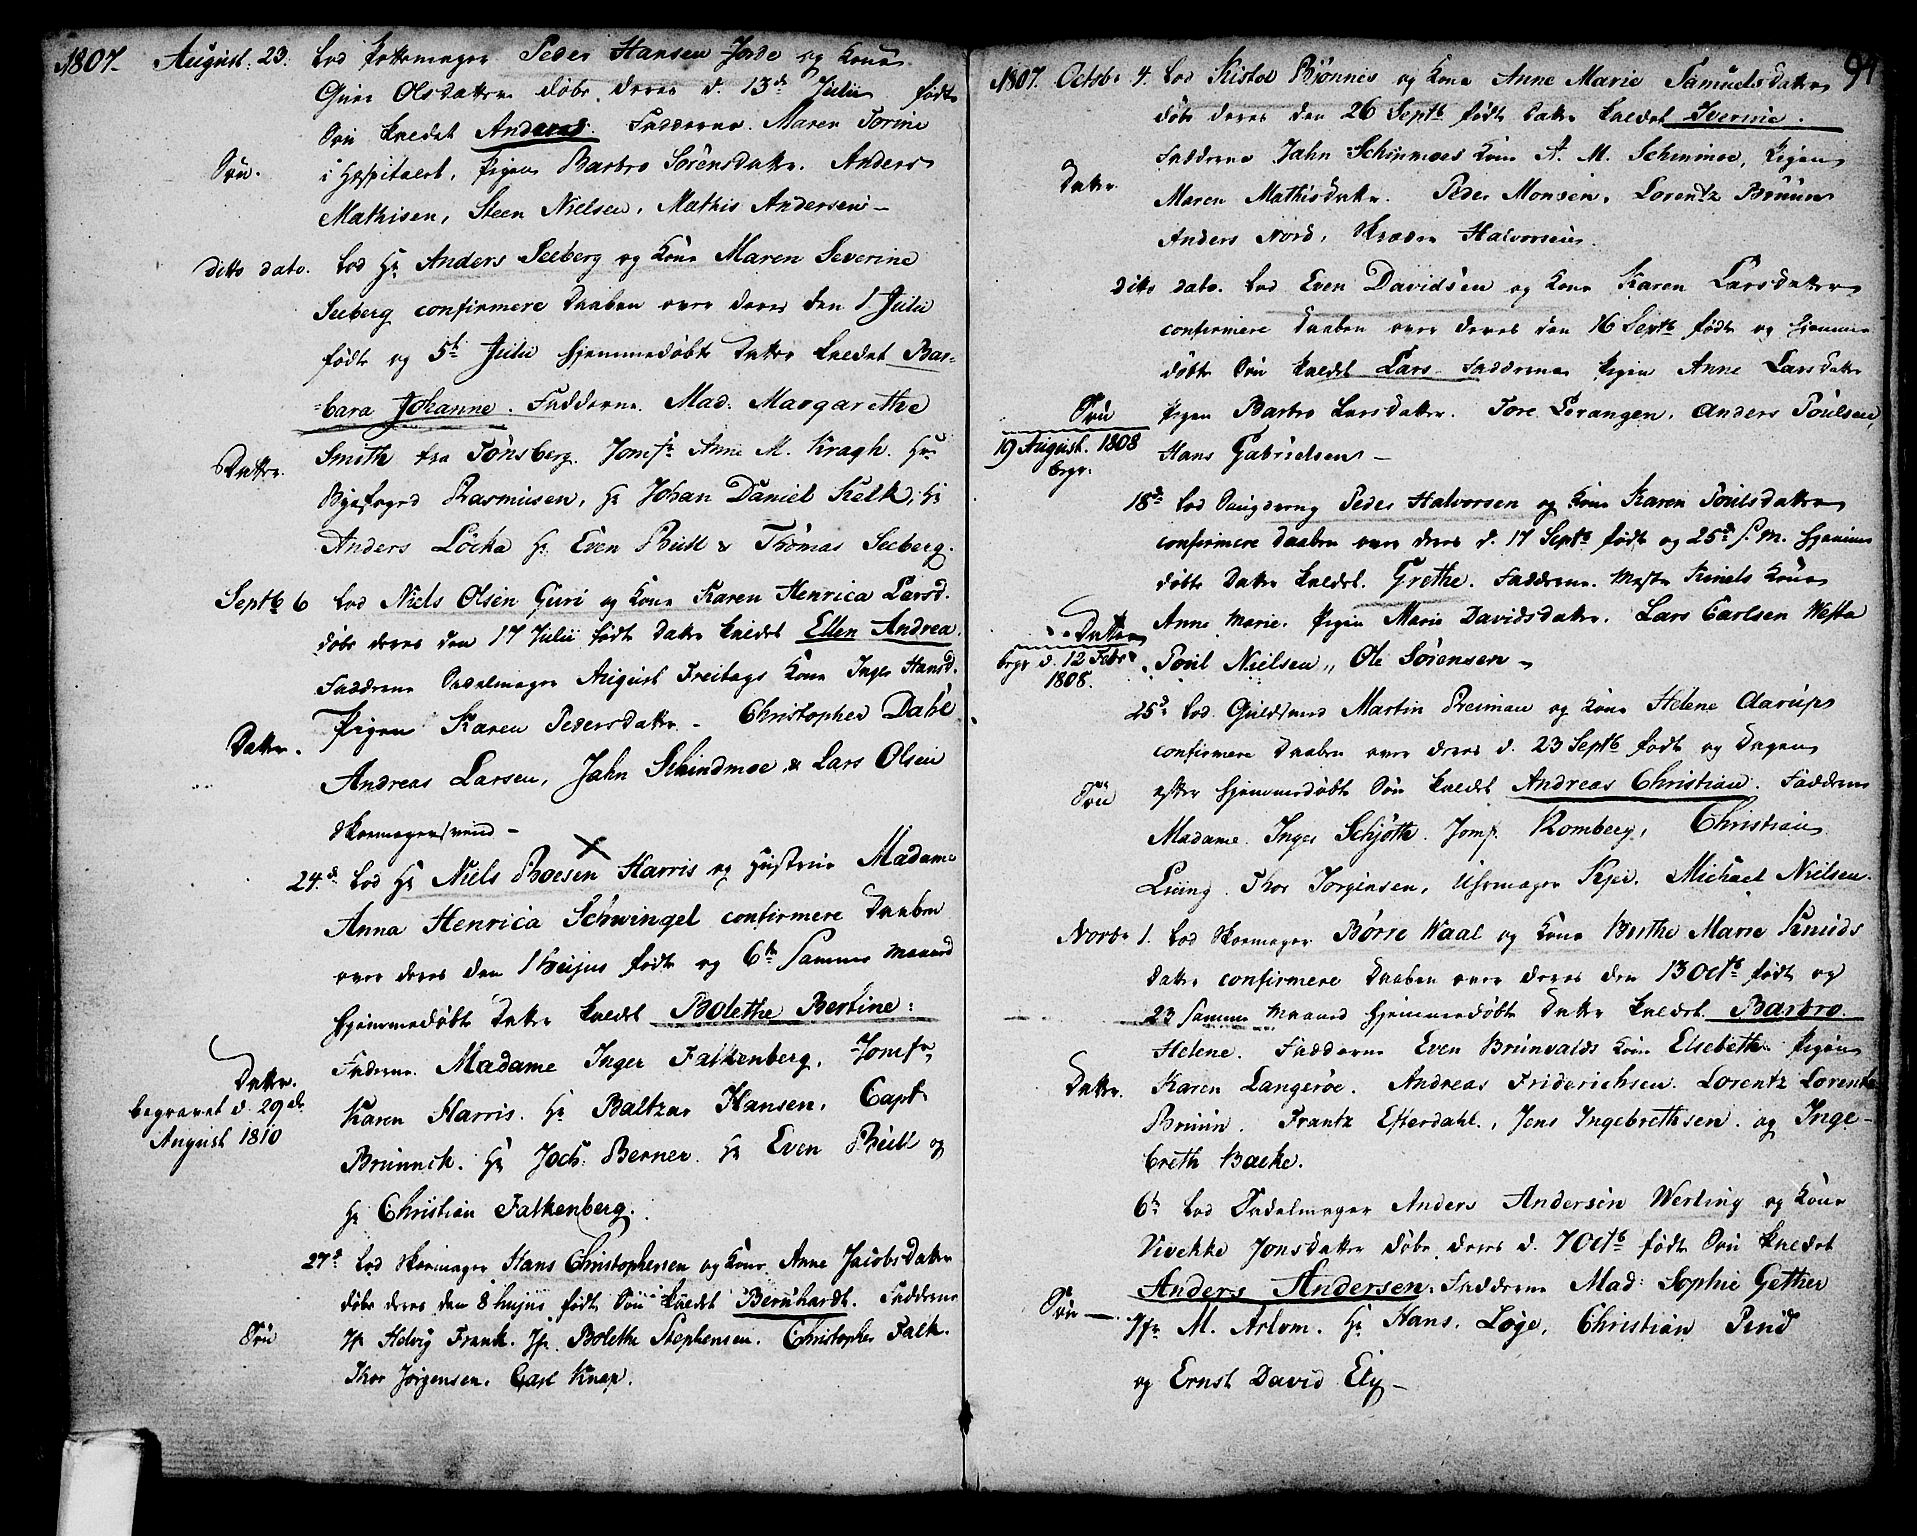 1807. August. 23. Lod Pottemager Peder Hansen Jorde og Kone
Guri Olsdatter døbe deres d. 13d Julii født
Søn kaldet Andreas. Fadderne. Maren Torine
Søn. i Hospitalet, Pigen Barbro Sørensdatter. Anders
Mathisen, Steen Nielsen, Mathis Andersen –
Ditto dato. Lod Hr Anders Seeberg og Kone Maren Severine
Seeberg confirmere Daaben over deres den 1 Julii
født og 5te Julii hjemmedøbt Datter kaldet Bar-
-bara Johanne. Fadderne. Mad: Margarethe
Datter. Smith fra Tønsberg. Jomfr Anne M. Kragh. Hr
Byefoged Rasmusen, Hr Johan Daniel Kelk, Hr
Anders Löcka Hr Even Bull & Thomas Seeberg.
Septb 6 Lod Niels Olsen Guri og Kone Karen Henrica Larsd.
døbe deres den 17 Julii født Datter kaldet Ellen Andrea.
Fadderne Sadelmager August Freitags Kone Inger Hansd.
Datter. Pigen Karen Pedersdatter – Christopher Dahl
Andreas Larsen, Jahn Schindmoe & Lars Olsen
Skomagersvend –
24.d Lod Hr Niels Boesen Harris og Hustrue Madame
Anna Henrica Schwingel confirmere Daaben
over deres den 1 hujus født og 6te Samme Maaned
hjemmedøbt Datter kaldet Bolethe Bertine:
Datter. Fadderne. Madame Inger Falkenberg. Jomfr
begravet d. 29de Karen Harris. Hr Baltzar Hansen. Capt
August 1810 Brunnek. Hr Joch: Berner. Hr Even Bull og
Hr Christian Falkenberg.
27d Lod Skomager Hans Christophersen og Kone Anne Jacobs Datter
døbe deres den 8 hujus født Søn kaldet Bernhardt. Fadderne
Søn Jf Helvig Frank. Jf Bolethe Stephensen. Christopher Falk.
Thor Jørgensen. Carl Knap.
91
1807. Octobr 4. Lod Kistol Bjønnes og Kone Anne Marie Samuelsdatter
døbe deres den 26 Septb født Datter kaldet Iverine.
Datter Fadderne Jahn Schinmoes Kone A. M. Schinmoe, Pigen
Maren Mathisdatter. Peder Monsen, Lorentz Bruun
Anders Nord, Halvorsen.
Ditto dato. Lod Even Davidsen og Kone Karen Larsdatter
confirmere Daaben over deres den 16 Septb født og hjemme
døbt Søn kaldet Lars. Fadderne Pigen Anne Larsdatter
Søn Pigen Barbro Larsdatter. Tore Levangen, Anders Poulsen,
19 August. 1808 Hans Gabrielsen –
begr.
18d Lod Peder Halvorsen og Kone Karen Poulsdatter
confirmere Daaben over deres d. 17 Septb født og 25d s. M. hjemme
døbt Datter kaldet. Grethe. Fadderne. Kone
Datter Anne Marie. Pigen Marie Davidsdatter. Lars Carlsen
begr d. 12 Febr Poul Nielsen, Ole Sørensen –
1808.
25d Lod Guldsmed Martin Preiman og Kone Helene Aarups
confirmere Daaben over deres d. 23 Septb født og Dagen
Søn efter hjemmedøbt Søn kaldet Andreas Christian. Fadderne
Madame. Inger Schjøth. Jomf. Romberg, Christian
Luing. Thor Jørgensen, Uhrmager Kjei. Michael Nielsen.
Novbr 1. Lod Skomager Børre Waal og Kone Berthe Marie Knuds
datter confirmere Daaben over deres den 13 Octb født og
23 Samme Maaned hjemmedøbt Datter kaldet Barbro
Helene. Fadderne Even Brunvalds Kone Elsebeth. Pigen
Datter. Karen Langerøe. Andreas Friderichsen. Lorentz Lorentz
Bruun. Frantz Efterdahl., Jens Ingebrethsen. og Inge-
breth Bakke.
6te Lod Sadelmager Anders Andersen Werling og Kone
Vivekke Jonsdatter døbe deres d. 7 Octb født Søn kaldet
Anders Andersen. Fadderne Mad: Sophie Gether
Søn – Jfr M. Arbom. Hr Hans. Løge, Christian Pind
og Ernst David Ely –